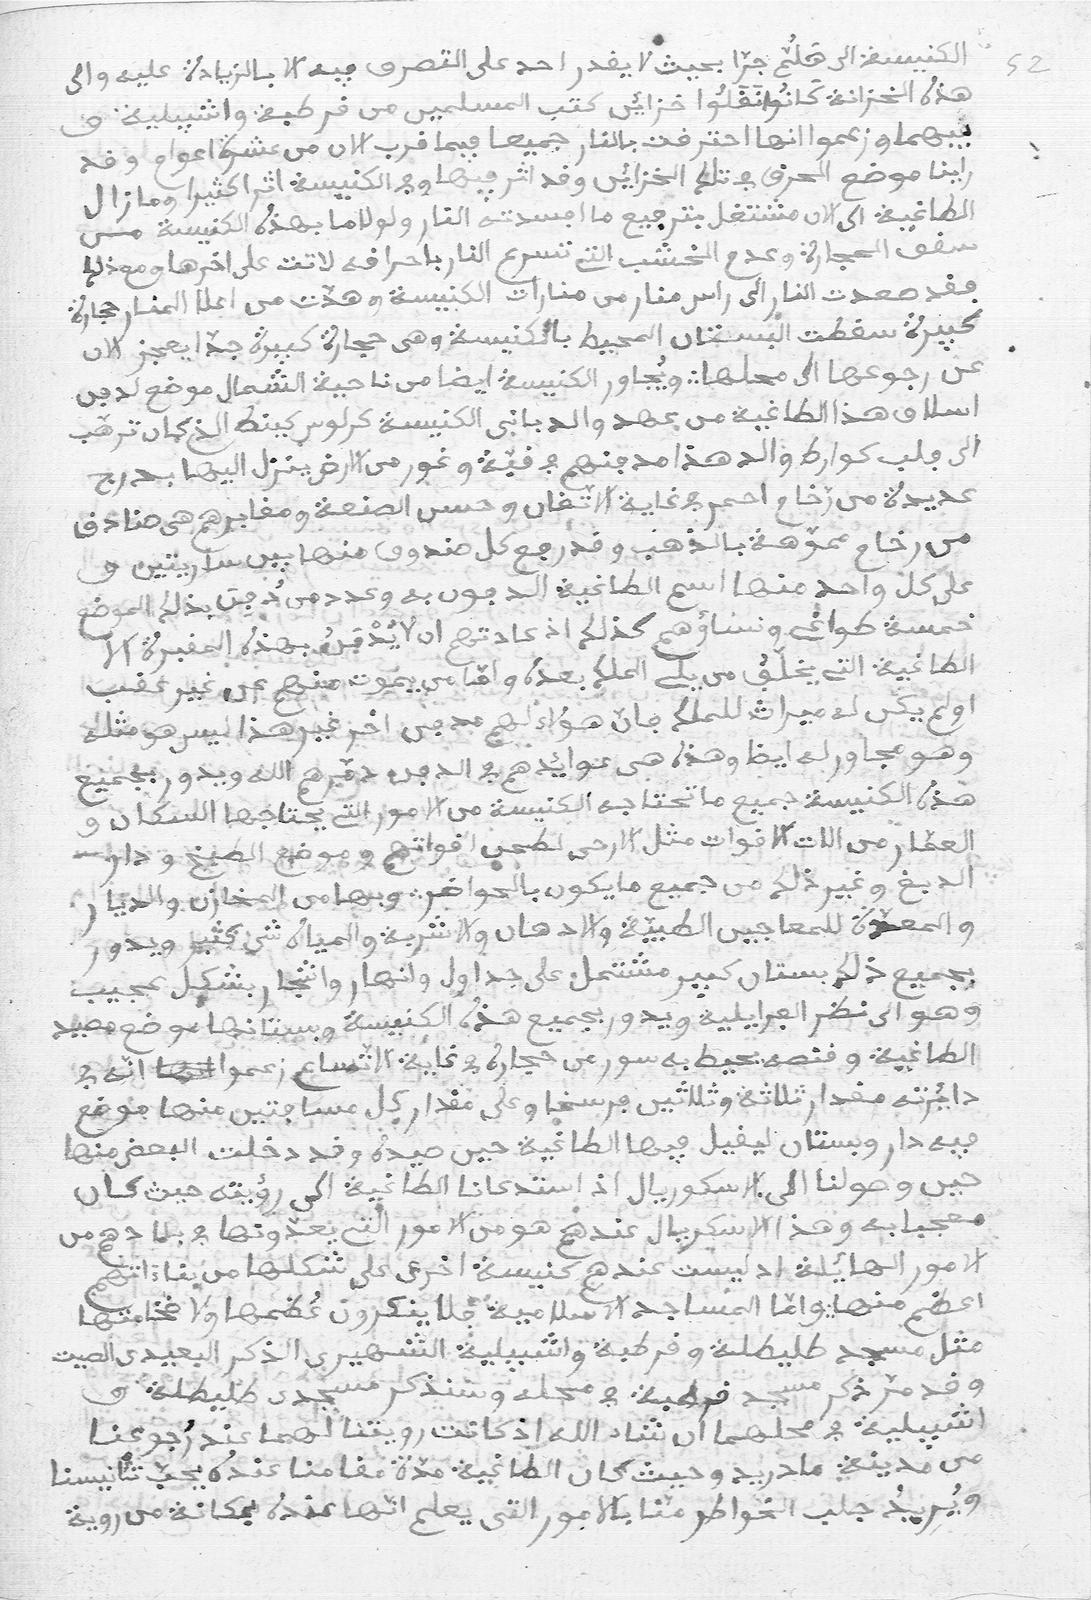 52
الكنيسة الى هلُمّ جرّا بحيث لا يقدر احد على التصرف فيه الا بالزيادة عليه والى
هذه الخزانة كَانُوا نَقَلُوا خزائن كتب المسلمين من قرطبة واشبيلية و
غيرهما وزعموا انها احترقت بالنار جميعا فيما قرب الان من عشرة اعوام وقد
راينا موضع الحرق في تلك الخزائن وقد اثر فيها وفي الكنيسة اثرا كثيرا وما زال
الطاغية الى الان مشتغل بترفيع ما افسدته النار ولولا ما بهذه الكنيسة من
سقف الحجارة وعدم الخشب التي تسرع النار باحراقه لاتت على اخرها ومع ذلك
فقد صعدت النار الى راس منار من منارات الكنيسة وهدّت من اعلا المنار حجارة
كبيرة سقطت البستان المحيط بالكنيسة وهي حجارة كبيرة جدّا يعجز الان
عن رجوعها الى محلها ويُجاور الكنيسة ايضا من ناحية الشمال موضع لدفن
اسلاف هذا الطاغية من عهد والد بانى الكنيسة كرلوس كينط الذي كان ترهّب
الى فلب كوارط والد هذا مدفنهم في قبّة وغور من الارض ينزل اليها بدرج
عديدة من رّخام احمر في غاية الاتّقان وحسن الصنعة ومقابرهم هي صنادق
من رخام مموّهة بالذهب وقد رفع كل صندوق منها بين ساريتين و
على كل واحد منها اسم الطاغية المدفون به وعدد من دُفِنَ بذلك الموضع
خمسة طواغى ونساؤهم كذلك اذ عادتهم ان لا يُدْفَنُ بهذه المقبرة الا
الطاغية التي يخلّفُ من يلى الملك بعده وامّا من يموت منهم عن غير عقب
او لم يكن له ميراث للملك فانّ هؤلاء لهم مدفن اخر غير هذا ليس هو مثله
وهو مجاور له ايظا وهذه هي عوائدهم في الدفن دمّرهم الله ويدور بجميع
هذه الكنيسة جميع ما تحتاجه الكنيسة من الامور التي يحتاجها السكان و
العمّار من الات الاقوات مثل الارحى لطحن اقواتهم وموضع الطبخ ودار
الدبغ وغير ذلك من جميع ما يكون بالحواضر وبها من المخازن والديار
والمعدّة للمعاجين الطبيّة والادهان والاشربة والمياه شي كثير ويدور
بجميع ذلك بستان كبير مشتمل على جداول وانهار واشجار بشكل عجيب
وهو الى نظر الفرايلية ويدور بجميع هذه الكنيسة وبستانها موضع مصيد
الطاغية وقنصه يحيط به سور من حجارة في غاية الاتّساع زعموا انّه في
دائرته مقدار ثلاثة وثلاثين فرسخا وعلى مقدار كل مسافتين منها موضع
فيه دار وبستان ليقيل فيها الطاغية حين صيده وقد دخلت البعض منها
حين وصولنا الى الاسكوريال اذ استدعانا الطاغية الى رؤيته حيث كان
معجبا به وهذا الاسكريال عندهم هو من الامور التي يعدّونها في بلادهم من
الامور الهائلة اذ ليست عندهم كنيسة اخرى على شكلها من بناءاتهم
اعظم منها وامّا المساجد الاسلامية فلا ينكرون عُظمها ولا فخامتها
مثل مسجد طليطلة وقرطبة واشبيلية الشهيرى الذكر البعيدى الصيت
وقد مرّ ذكر مسجد قرطبة في محله وسنذكر مسجدى طليطلة و
اشبيلية في محلهما ان شاء الله اذ كانت رويتنا لهما عند رُجوعنا
من مدينة مادريد وحيث كان الطاغية مدّة مقامنا عنده يحبّ تأنيسنا
ويُريدُ جلب الخواطر منّا بالامور التي يعلم انّها عنده بمكانة من روية